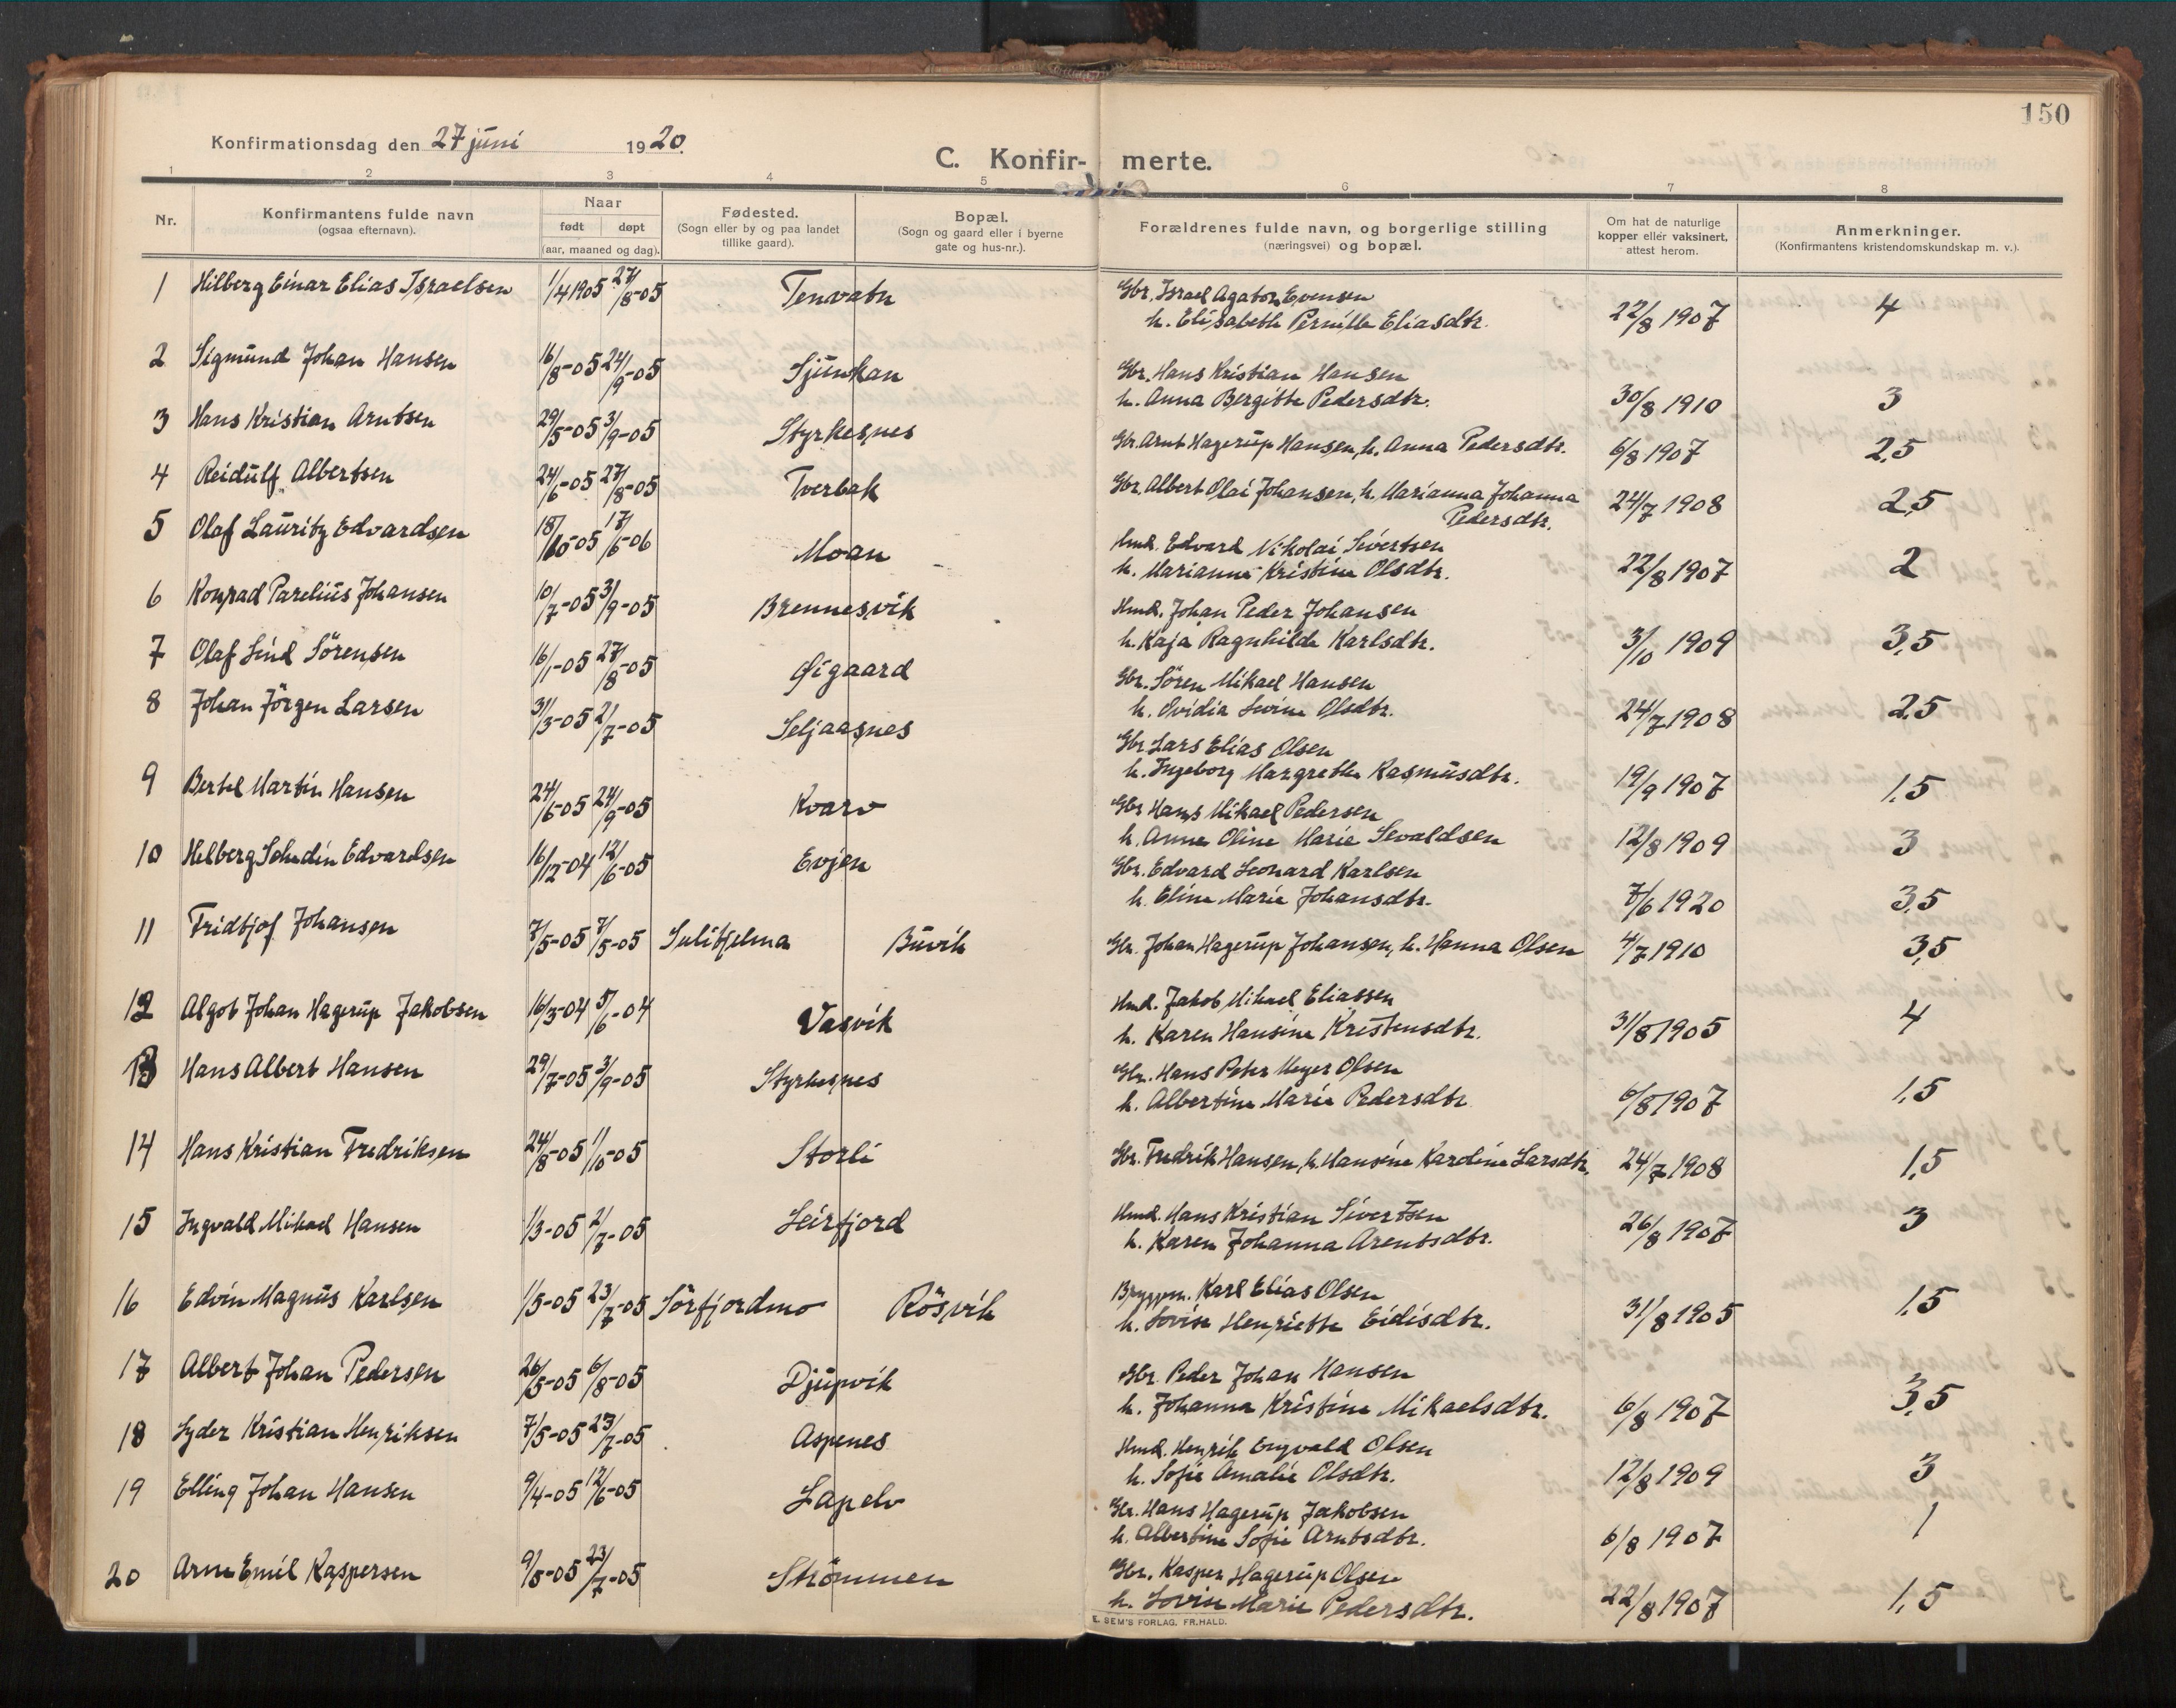 150
Konfirmationsdag den 27 juni 1920.
C. Konfir- merte.
1 2 3 4 5 6 7 8
Nr. Konfirmantens fulde navn (ogsaa efternavn). Naar født døpt (aar, maaned og dag). Fødested. (Sogn eller by og paa landet tillike gaard). Bopæl. (Sogn og gaard eller i byerne gate og hus-nr.). Forældrenes fulde navn, og borgerlige stilling (næringsvei) og bopæl. Om hat de naturlige kopper eller vaksinert, attest herom. Anmerkninger. (Konfirmantens kristendomskundskap m. v.).
1 Hilberg Einar Elias Israelsen 1/4 1905 27/8-05 Tenvatn Gbr. Israel Agaton Evensen
h. Elisabeth Pernille Eliasdtr. 22/8 1907 4
2 Sigmund Johan Hansen 16/8-05 24/9-05 Sjunkan Gbr. Hans Kristian Hansen
h. Anna Bergitte Pedersdtr. 30/8 1910 3
3 Hans Kristian Arntsen 29/5-05 3/9-05 Styrkesnes Gbr. Arnt Hagerup Hansen, h. Anna Pedersdtr. 6/8 1907 2,5
4 Reidulf Albertsen 24/6-05 27/8-05 Tverbak Gbr. Albert Olai Johansen, h. Marianna Johanna
Pedersdtr. 24/7 1908 2,5
5 Olaf Lauritz Edvardsen 18/10-05 17/6-06 Moan Hmd. Edvard Nikolai Sivertsen
h. Marianna Kristine Olsdtr. 22/8 1907 2
6 Konrad Parelius Johansen 10/7-05 3/9-05 Brennesvik Hmd. Johan Peder Johansen
h. Kaja Ragnhilda Karlsdtr. 3/10 1909 3,5
7 Olaf Lind Sörensen 16/1-05 27/8-05 Øigaard Gbr. Sören Mikael Hansen
h. Ovidia Levine Olsdtr. 24/7 1908 2,5
8 Johan Jörgen Larsen 31/3-05 2/7-05 Seljaasnes Gbr. Lars Elias Olsen
h. Ingeborg Margrethe Rasmusdtr. 19/9 1907 1,5
9 Bertel Martin Hansen 24/6-05 24/9-05 Kvarv Gbr. Hans Mikael Pedersen
h. Anna Oline Marie Sevaldsen 12/8 1909 3
10 Helberg Schedin Edvardsen 16/12-04 12/6-05 Evjen Gbr. Edvard Leonard Karlsen
h. Eline Marie Johansdtr. 7/6 1920 3,5
11 Fridtjof Johansen 7/5-05 7/5-05 Sulitjelma Buvik Gbr. Johan Hagerup Johansen, h. Hanna Olsen 4/7 1910 3,5
12 Algot Johan Hagerup Jakobsen 16/3-04 5/6-04 Vasvik Hmd. Jakob Mikael Eliassen
h. Karen Hansine Kristensdtr. 31/8 1905 4
13 Hans Albert Hansen 29/7-05 3/9-05 Styrkesnes Gbr. Hans Peter Meyer Olsen
h. Albertine Marie Pedersdtr 6/8 1907 1,5
14 Hans Kristian Fredriksen 24/8-05 1/10-05 Storli Gbr. Fredrik Hansen, h. Hansine Karoline Larsdtr. 24/7 1908 1,5
15 Ingvald Mikael Hansen 1/3-05 2/7-05 Leirfjord Hmd. Hans Kristian Sivertsen
h. Karen Johanna Arentsdtr. 26/8 1907 3
16 Edvin Magnus Karlsen 1/5-05 23/7-05 Sörfjordmo Rösvik Bryggm. Karl Elias Olsen
h. Lovise Henriette Eidisdtr. 31/8 1905 1,5
17 Albert Johan Pedersen 26/5-05 6/8-05 Djupvik Gbr. Peder Johan Hansen
h. Johanna Kristine Mikaelsdtr. 6/8 1907 3,5
18 Lyder Kristian Henriksen 7/5-05 23/7-05 Aspenes Hmd. Henrik Engvald Olsen
h. Sofie Amalie Olsdtr. 12/8 1909 3
19 Elling Johan Hansen 9/4-05 12/6-05 Lapelv Gbr. Hans Hagerup Jakobsen
h. Albertine Sofie Arntsdtr. 6/8 1907 1
20 Arne Emil Kaspersen 9/5-05 23/7-05 Strömmen Gbr. Kasper Hagerup Olsen
h. Lovise Marie Pedersdtr. 22/8 1907 1,5
E. SEM'S FORLAG, FR.HALD.